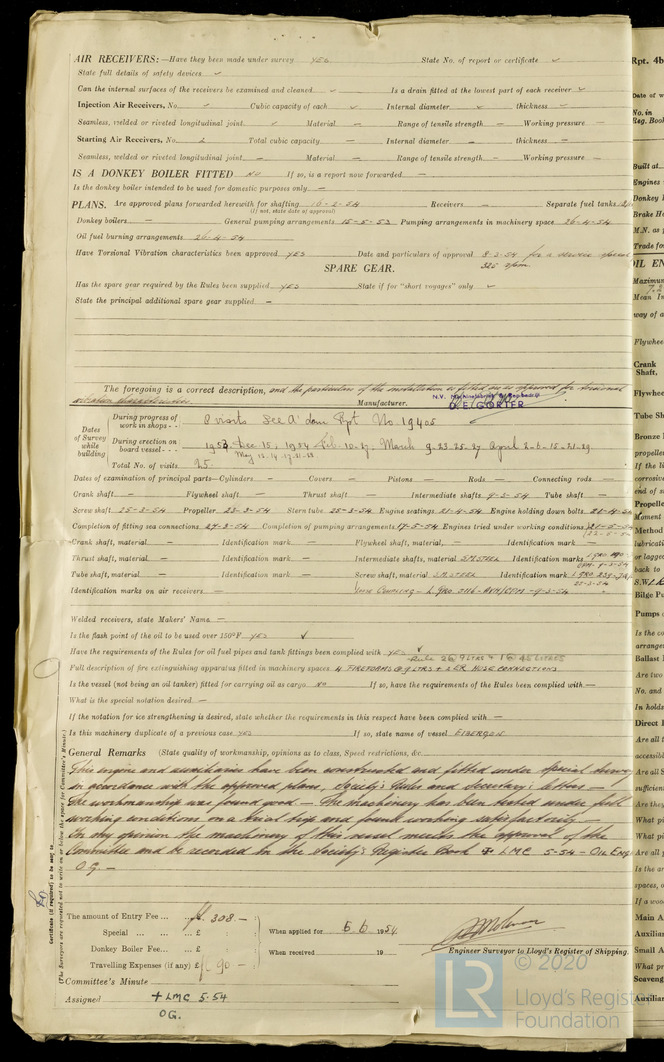 AIR RECEIVERS:—Have they been made under survey YES State No. of report or certificate ✓
State full details of safety devices ✓
Can the internal surfaces of the receivers be examined and cleaned ✓ Is a drain fitted at the lowest part of each receiver ✓
Injection Air Receivers, No. ✓ Cubic capacity of each ✓ Internal diameter ✓ thickness —
Seamless, welded or riveted longitudinal joint ✓ Material — Range of tensile strength — Working pressure —
Starting Air Receivers, No. 2 Total cubic capacity — Internal diameter — thickness —
Seamless, welded or riveted longitudinal joint — Material — Range of tensile strength — Working pressure —
IS A DONKEY BOILER FITTED NO If so, is a report now forwarded —
Is the donkey boiler intended to be used for domestic purposes only —
PLANS. Are approved plans forwarded herewith for shafting 16-2-54 Receivers — Separate fuel tanks
(If not, state date of approval)
Donkey boilers — General pumping arrangements 15-5-53 Pumping arrangements in machinery space 26-4-54
Oil fuel burning arrangements 26-4-54
Have Torsional Vibration characteristics been approved YES Date and particulars of approval 8-3-54 for a service speed
325 rpm
SPARE GEAR.
Has the spare gear required by the Rules been supplied YES State if for "short voyages" only ✓
State the principal additional spare gear supplied —
The foregoing is a correct description, and the particulars of the installation as fitted are as approved for torsional
vibration characteristics. Manufacturer.
D. E. GORTER
Dates of Survey while building
During progress of work in shops - - 8 visits See A'dam Rpt No. 19405
During erection on board vessel - - - 1953 Dec. 15, 1954 Feb. 10-27, March 9-23-25-27 April 2-6-15-21-29
May 12-14-17-21-22
Total No. of visits 25
Dates of examination of principal parts—Cylinders — Covers — Pistons — Rods — Connecting rods —
Crank shaft — Flywheel shaft — Thrust shaft — Intermediate shafts 9-3-54 Tube shaft —
Screw shaft 25-3-54 Propeller 23-3-54 Stern tube 25-3-54 Engine seatings 21-4-54 Engine holding down bolts
Completion of fitting sea connections 27-3-54 Completion of pumping arrangements 17-5-54 Engines tried under working conditions 21-5-54
Crank shaft, material — Identification mark — Flywheel shaft, material — Identification mark —
Thrust shaft, material — Identification mark — Intermediate shafts, material S.M.STEEL Identification marks
Tube shaft, material — Identification mark — Screw shaft, material S.M.STEEL Identification mark
Identification marks on air receivers —
Welded receivers, state Makers' Name —
Is the flash point of the oil to be used over 150°F YES ✓
Have the requirements of the Rules for oil fuel pipes and tank fittings been complied with YES ✓
Full description of fire extinguishing apparatus fitted in machinery spaces 4 FIREFOAMS @ 9 LTRS + 2 E.R. HOSE CONNECTIONS
Is the vessel (not being an oil tanker) fitted for carrying oil as cargo NO If so, have the requirements of the Rules been complied with —
What is the special notation desired —
If the notation for ice strengthening is desired, state whether the requirements in this respect have been complied with —
Is this machinery duplicate of a previous case YES If so, state name of vessel EIBERGEN
General Remarks (State quality of workmanship, opinions as to class, Speed restrictions, &c.
This engine and auxiliaries have been constructed and fitted under special survey
in accordance with the approved plans, Society's Rules and Secretary's letters —
The workmanship was found good — The machinery has been tested under full
working conditions on a trial trip and found working satisfactorily —
In my opinion the machinery of this vessel merits the approval of the
Committee and be recorded in the Society's Register Book ✠ LMC 5-54 — OIL ENG
O.G. —
The amount of Entry Fee ... fl. 308 —
Special ... ... £ When applied for 5.6 1954
Donkey Boiler Fee... £ Engineer Surveyor to Lloyd's Register of Shipping.
Travelling Expenses (if any) £ fl 90 — When received 19
Committee's Minute
Assigned + LMC 5.54
OG.
Certificate (if required) to be sent to
(The Surveyors are requested not to write on or below the space for Committee's Minute.)
Rpt. 4b
© 2020
Lloyd's Register
Foundation
LR